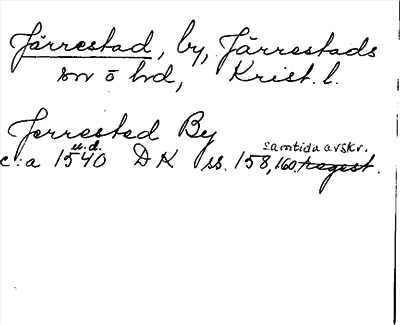 Järrestad, by, Järrestads
sn o hd, Krist. l.
Jerrestad By
u.d. samtida avskr.
c:a 1540 DK s. 158, 160. regest.